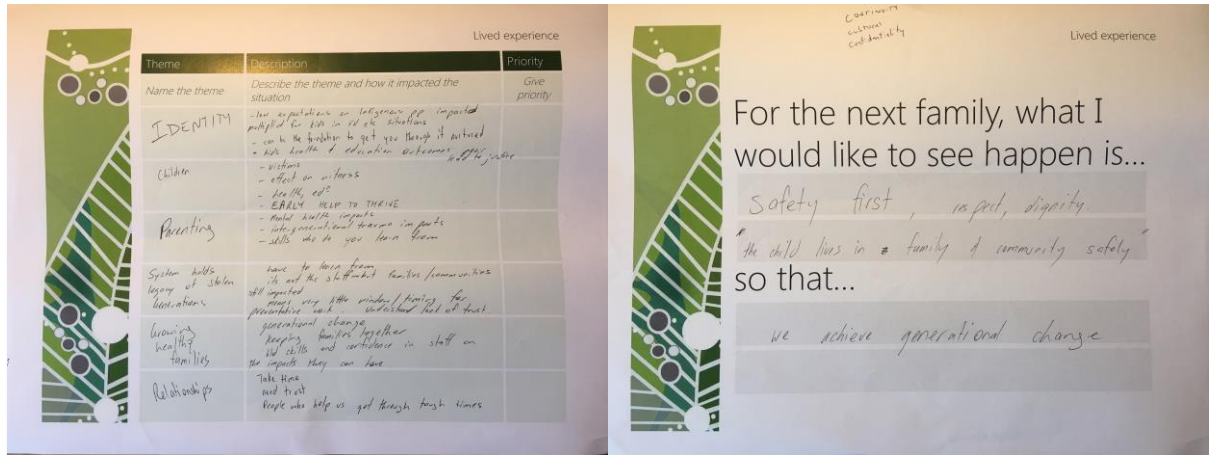 Lived experience
Theme Description Priority
Name the theme
Describe the theme and how it impacted the
situation
Give
priority
IDENTITY
- low expectations on Indigenous pp impacted
multiplied for kids in etc situations
- can be the foundation to get you through if nurtured
kids health & education outcomes poor
lead to justice
Children
- victims
- effect on witness
- health, ed
- EARLY HELP TO THRIVE
Parenting
- Mental health impacts
- intergenerational trauma impacts
- skills who do you learn from
System holds
legacy of stolen
Generations
have to learn from
its not the staff but families/communities
still impacted
means very little window/timing for
preventative work. understand lack of trust
Growing
healthy
families
generational change
keeping families together
skills and confidence in staff on
the impacts they can have
Relationships
Take time
need trust
People who help us get through tough times
cultural
Confidentiality
Lived experience
For the next family, what I
would like to see happen is...
Safety first, respect, dignity.
"the child lives in family & community safely"
so that...
we achieve generational change